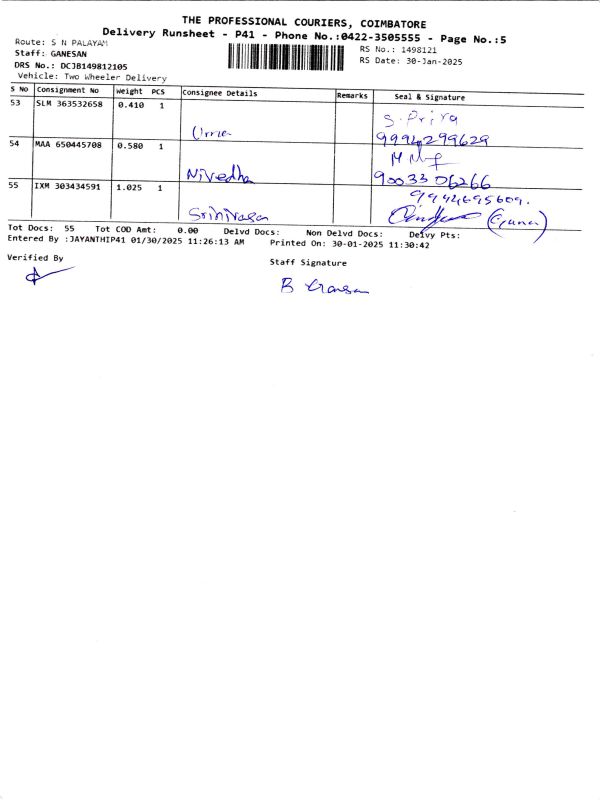 THE PROFESSIONAL COURIERS, COIMBATORE
Delivery Runsheet - P41 - Phone No.:0422-3505555 - Page No.:5
Route: S N PALAYAM
RS No.: 1498121
Staff: GANESAN
RS Date: 30-Jan-2025
DRS No.: DCJB149812105
Vehicle: Two Wheeler Delivery
S No Consignment No Weight PCS Consignee Details Remarks Seal & Signature
53 SLM 363532658 0.410 1
S. Priya
Uma 9994299629
54 MAA 650445708 0.580 1
Nivedha 9003306266
55 IXM 303434591 1.025 1
9944695609.
Srinivasan
Tot Docs: 55 Tot COD Amt: 0.00 Delvd Docs: Non Delvd Docs: Delvy Pts:
Entered By :JAYANTHIP41 01/30/2025 11:26:13 AM Printed On: 30-01-2025 11:30:42
Verified By
Staff Signature
B Ganesan